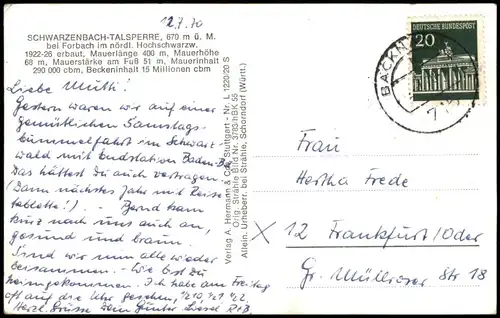 12.7.70
SCHWARZENBACH-TALSPERRE, 670 m ü. M.
bei Forbach im nördl. Hochschwarzw.
1922-26 erbaut, Mauerlänge 400 m, Mauerhöhe
68 m, Mauerstärke am Fuß 51 m, Mauerinhalt
290 000 cbm, Beckeninhalt 15 Millionen cbm
Liebe Mutti!
Gestern waren wir auf einer
gemütlichen Samstags-
bummelfahrt im Schwarz-
wald mit Endstation Baden-B.
Das hättest Du auch vertragen.
(Dann nächstes Jahr mit Reise
tablette!) – Bernd kam
kurz nach uns auch an,
gesund und braun.
Sind wir nun alle wieder
beisammen. – Wie bist Du
heimgekommen. Ich habe am Freitag
oft auf die Uhr gesehen,
Herzl. Grüsse Dein Günter Liesel R+B
Verlag A. Hermann & Co., Stuttgart - Nr. L 1220/20 S
Orig. Strähle Bild Nr. 3783/hBK 55
Allein. Urheberr. bei Strähle, Schorndorf (Württ.)
DEUTSCHE BUNDESPOST
20
BACKN
Frau
Hertha Frede
X 12 Frankfurt/Oder
Gr. Müllroser Str 18